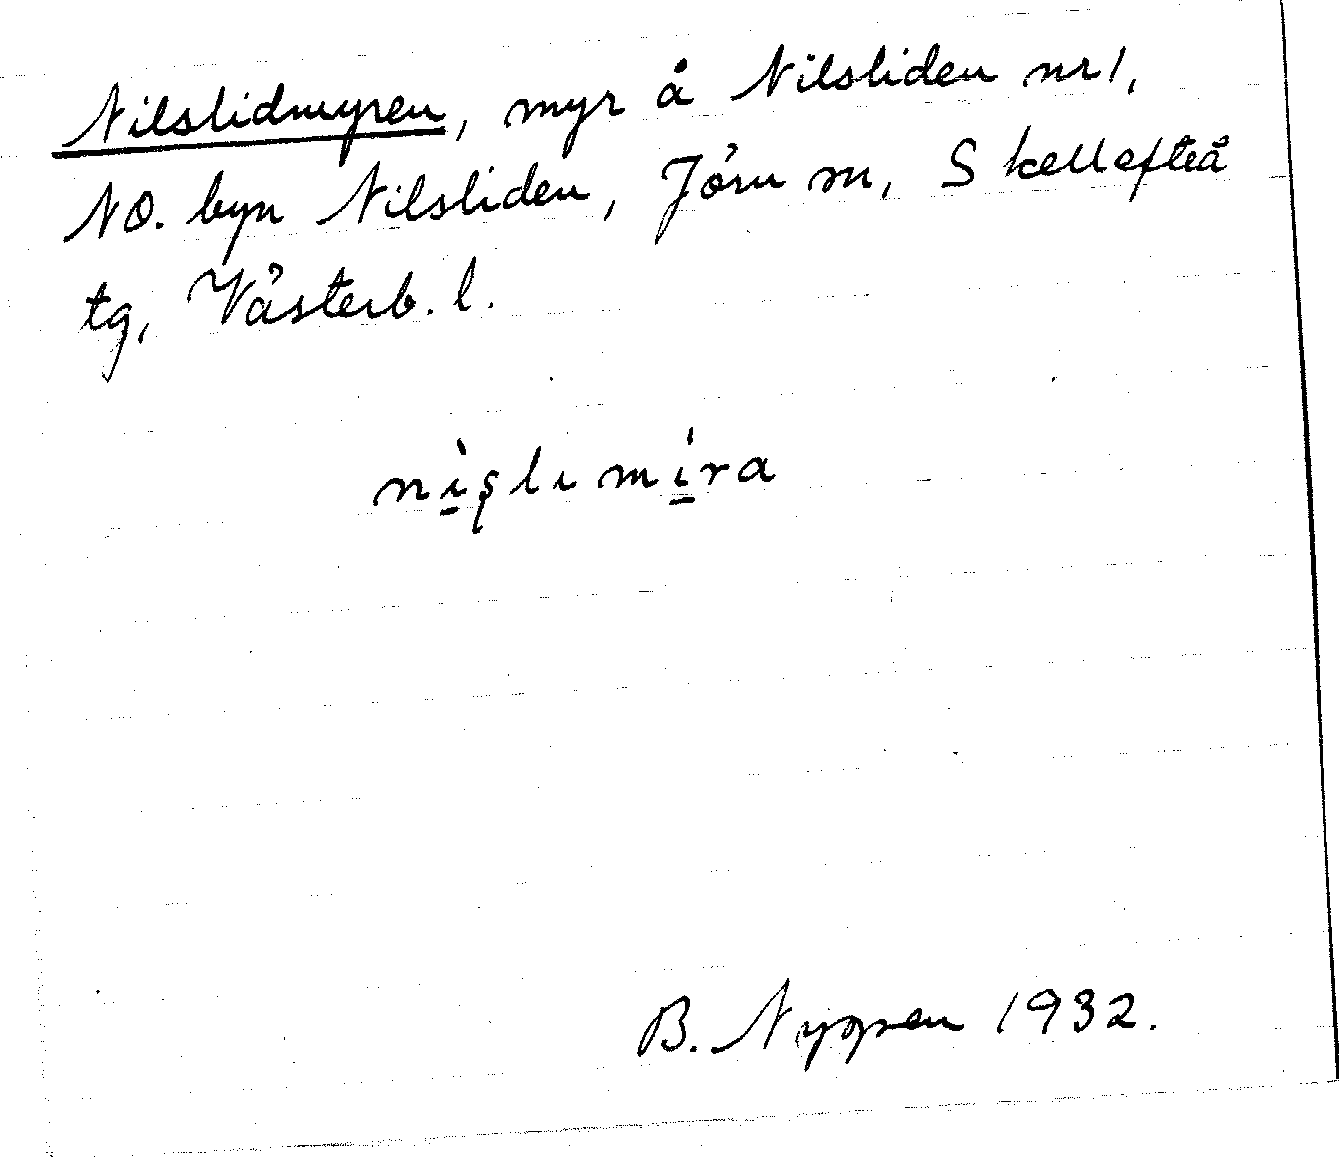 Nilslidmyren, myr å Nilsliden nr 1,
NO. byn Nilsliden, Jörn sn, Skellefteå
tg, Västerb. l.
nı̱̀ʂlımı̱́ra
B. Nygren 1932.